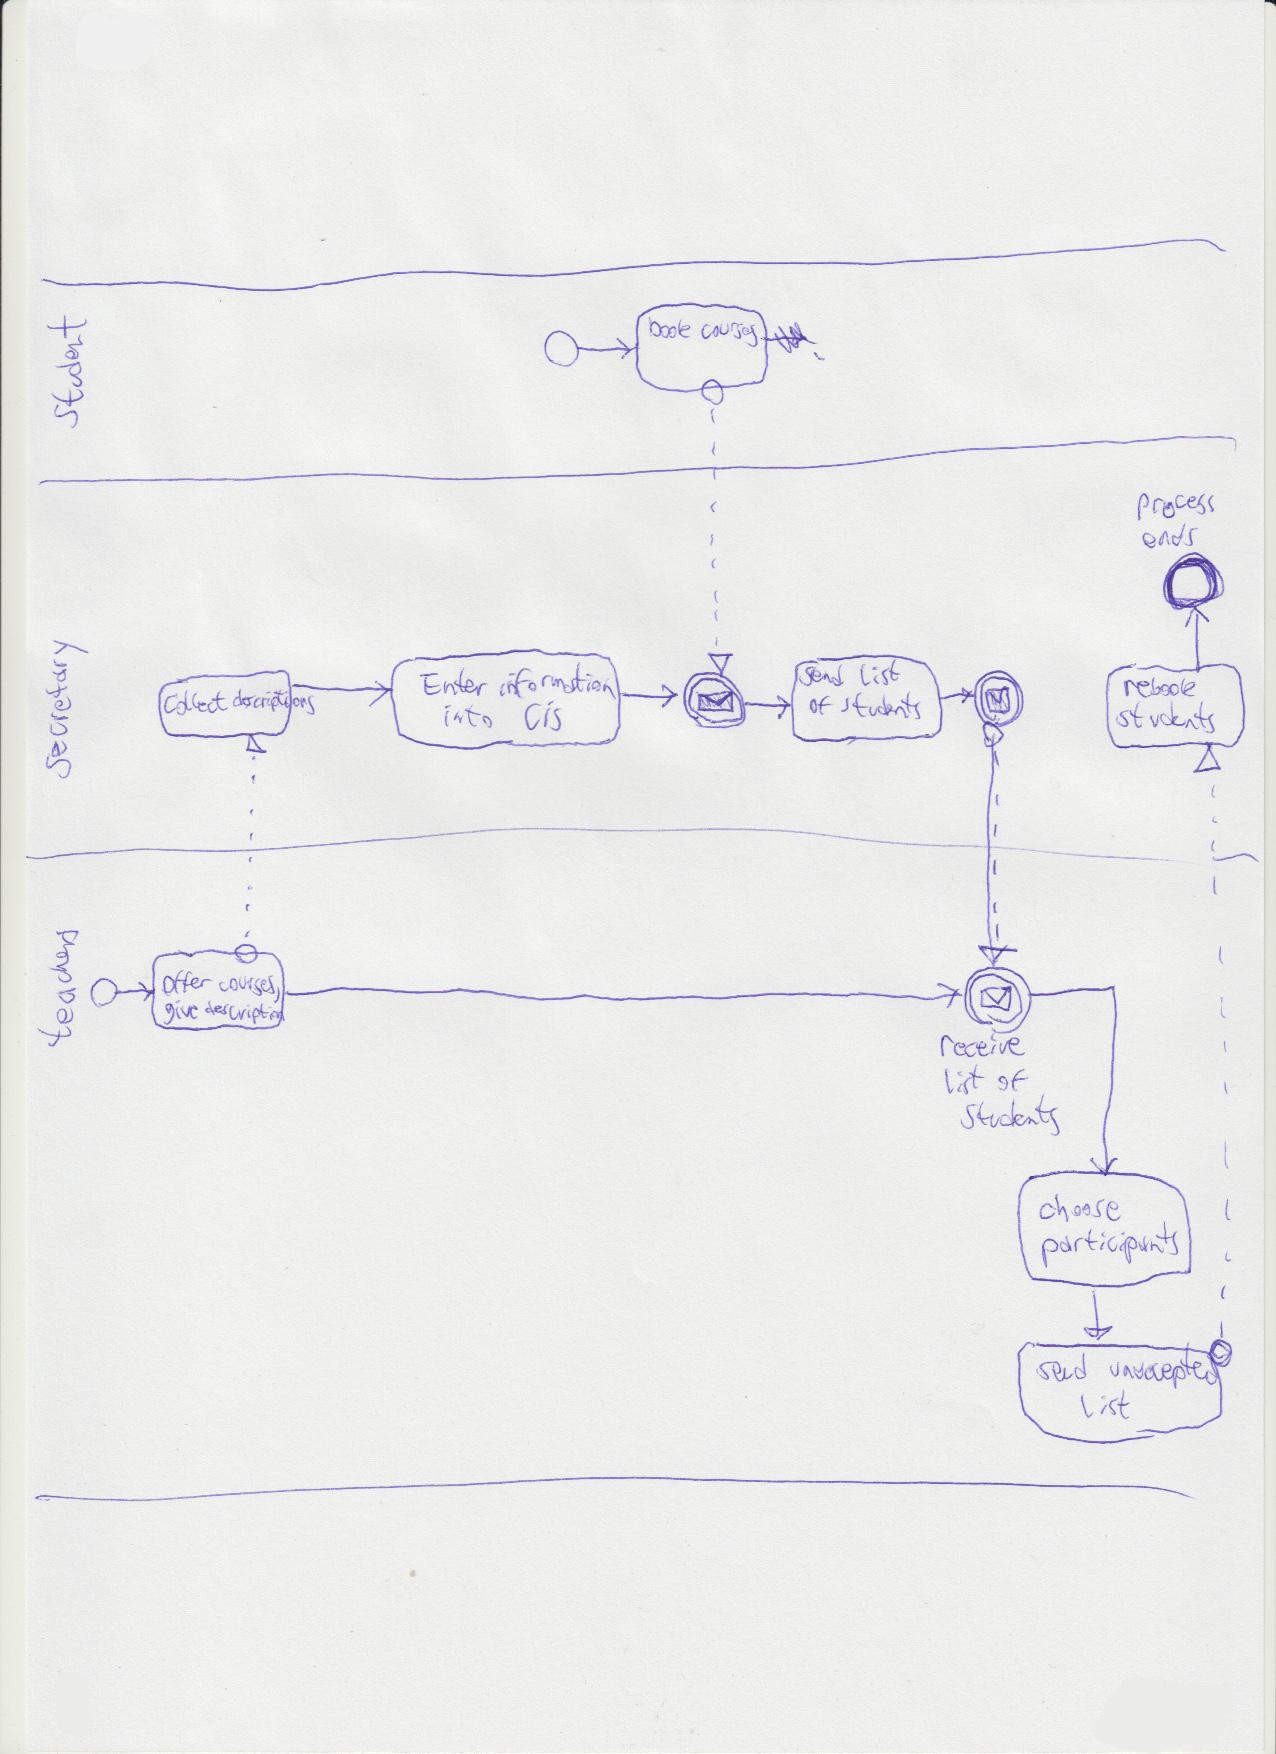 Student
book courses
process
ends
Secretary
Collect descriptions
Enter information
into Cis
Send List
of students
rebook
students
teachers
Offer courses,
give description
receive
List of
Students
choose
participants
send unaccepted
List